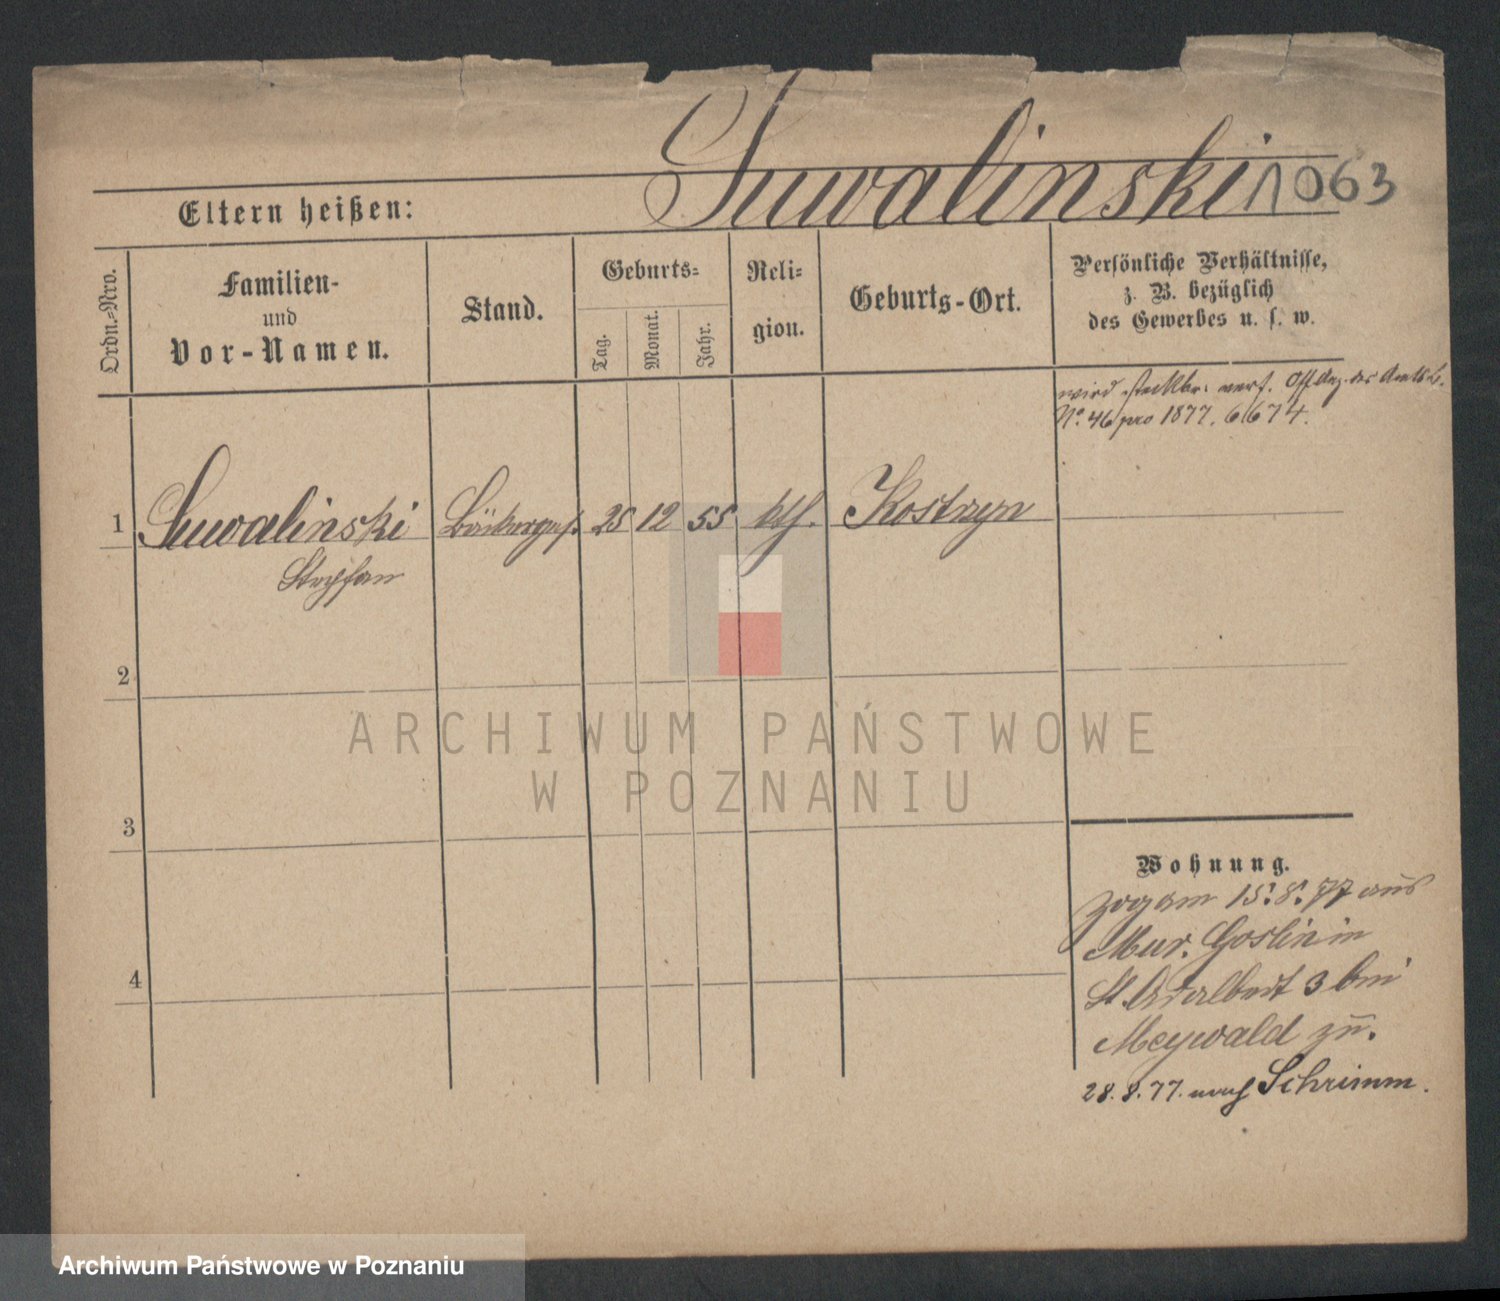 Suwalinski 1063
Eltern heißen:
Ordn.-Nro.
Familien-
und
Vor-Namen.
Stand.
Geburts-
Tag.
Monat.
Jahr.
Reli-
gion.
Geburts-Ort.
Persönliche Verhältnisse,
z. B. bezüglich
des Gewerbes u. s. w.
wird steckbr. verf. Off. Anz. des Amtsb.
No. 46 pro 1877. 6674.
1 Suwalinski Bäckerges. 25 12 55 kth. Kostrzyn
Stephan
2
3
4
Wohnung.
zog am 15.8.77 aus
Mur. Goslin in
St. Adalbert 3 bei
Meywald zu.
28.8.77. nach Schrimm.
ARCHIWUM PAŃSTWOWE
W POZNANIU
Archiwum Państwowe w Poznaniu